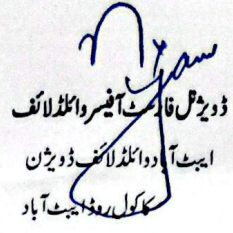 ڈویژنل فارسٹ آفیسر وائلڈ لائف
ایبٹ آباد وائلڈ لائف ڈویژن
کاکول روڈ ایبٹ آباد